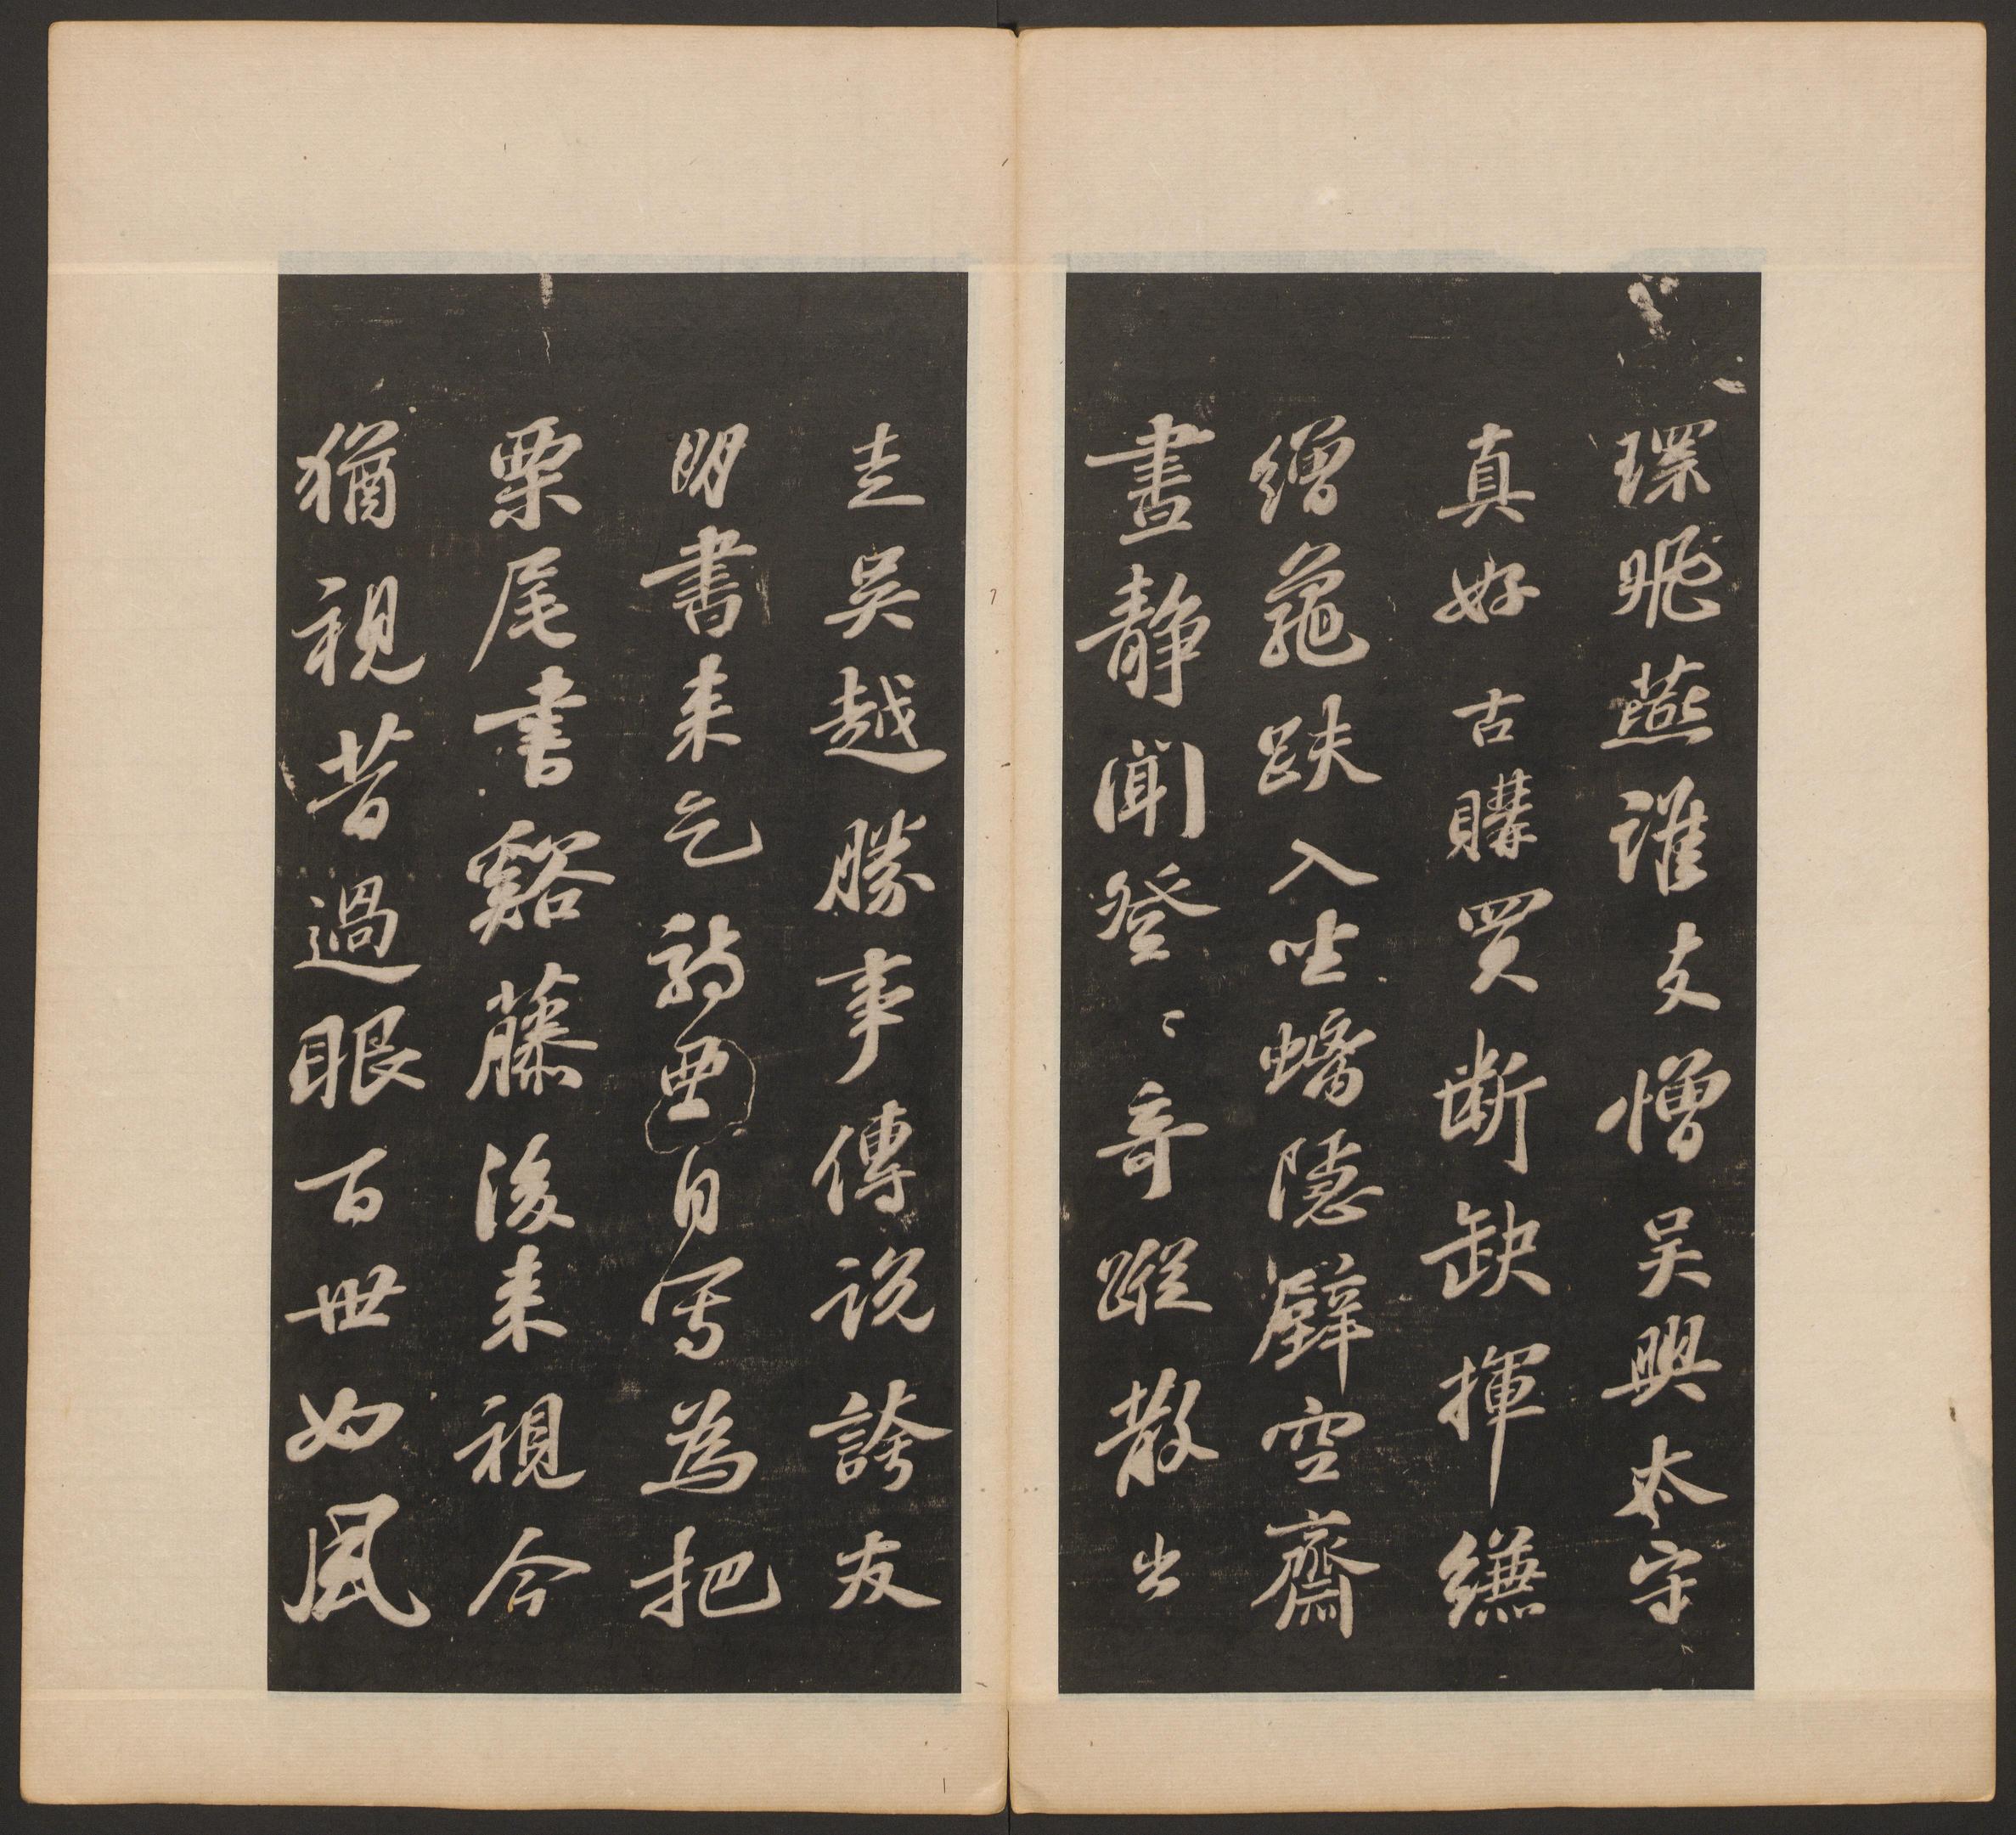 環飛燕誰憎吳興太守
真好古購買断缺揮縑
繒龜趺入坐螭隱壁空齋
晝静聞登〻奇蹤散出
走吳越勝事傳説誇友
朋書来乞詩要自寫為把
栗尾書谿藤後来視今
猶視昔過眼百世如風